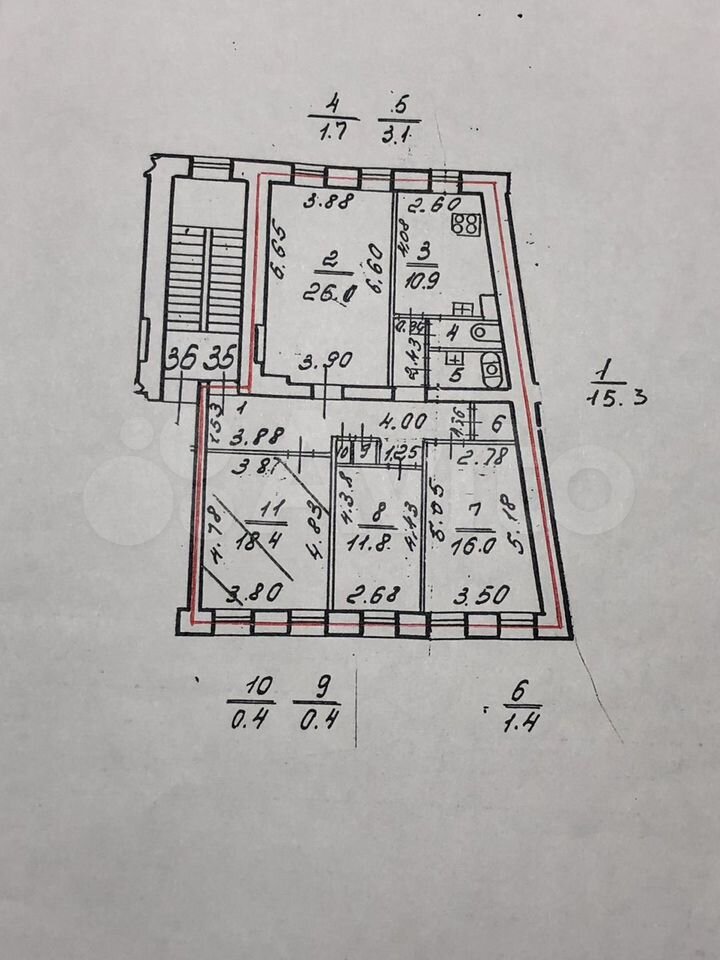 4 5
1.7 3.1
3.88 2.60
6.65 2 26.0 6.60 4.08 3 10.9
0.94 4
2.43 5
36 35 3.90
1
15.3
1.53 1 4.00 1.36 6
3.88
10 9 1.25 2.78
3.87
4.78 11 18.4 4.83 4.38 8 11.8 4.43 5.05 7 16.0 5.18
3.80 2.68 3.50
10 9 6
0.4 0.4 1.4